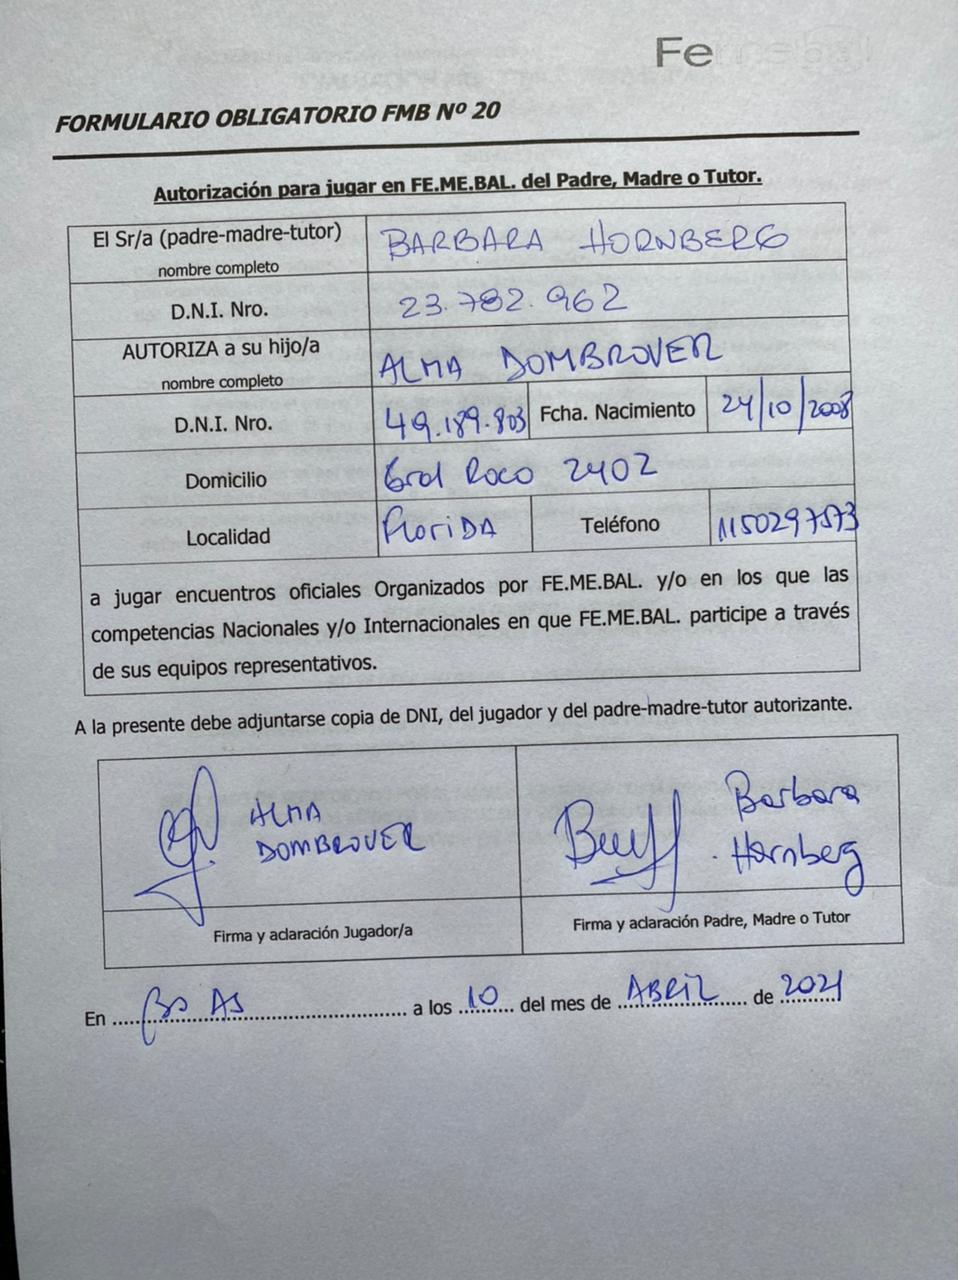 Femebal
FORMULARIO OBLIGATORIO FMB Nº 20
Autorización para jugar en FE.ME.BAL. del Padre, Madre o Tutor.
El Sr/a (padre-madre-tutor) BARBARA HORNBERG
nombre completo
D.N.I. Nro. 23.782.962
AUTORIZA a su hijo/a ALMA DOMBROVER
nombre completo
D.N.I. Nro. 49.189.803 Fcha. Nacimiento 24/10/2008
Domicilio Gral Roco 2402
Localidad FloriDA Teléfono 1150297573
a jugar encuentros oficiales Organizados por FE.ME.BAL. y/o en los que las
competencias Nacionales y/o Internacionales en que FE.ME.BAL. participe a través
de sus equipos representativos.
A la presente debe adjuntarse copia de DNI, del jugador y del padre-madre-tutor autorizante.
ALMA
DOMBROVER
Barbara
Hornberg
Firma y aclaración Jugador/a
Firma y aclaración Padre, Madre o Tutor
En Bs AS a los 10 del mes de ABRIL de 2021